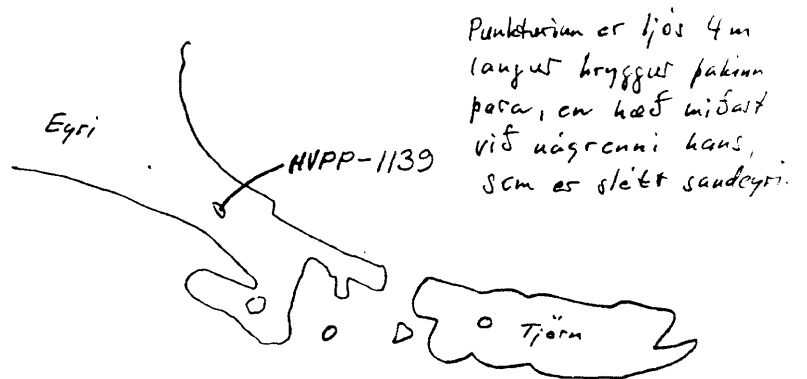 Punkturinn er ljós 4 m
langur hryggur þakinn
þara, en hæð miðast
við nágrenni hans,
sem er slétt sandeyri.
Eyri
HVPP-1139
Tjörn